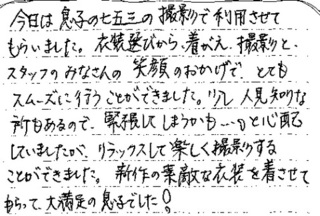 今日は息子の七五三の撮影で利用させて
もらいました。衣装選びから、着がえ、撮影と、
スタッフのみなさんの笑顔のおかげで、とても
スムーズに行うことができました。少し人見知りな
所もあるので、緊張してしまうかも…。と心配
していましたが、リラックスして楽しく撮影する
ことができました。新作の素敵な衣装を着させて
もらって、大満足の息子でした!